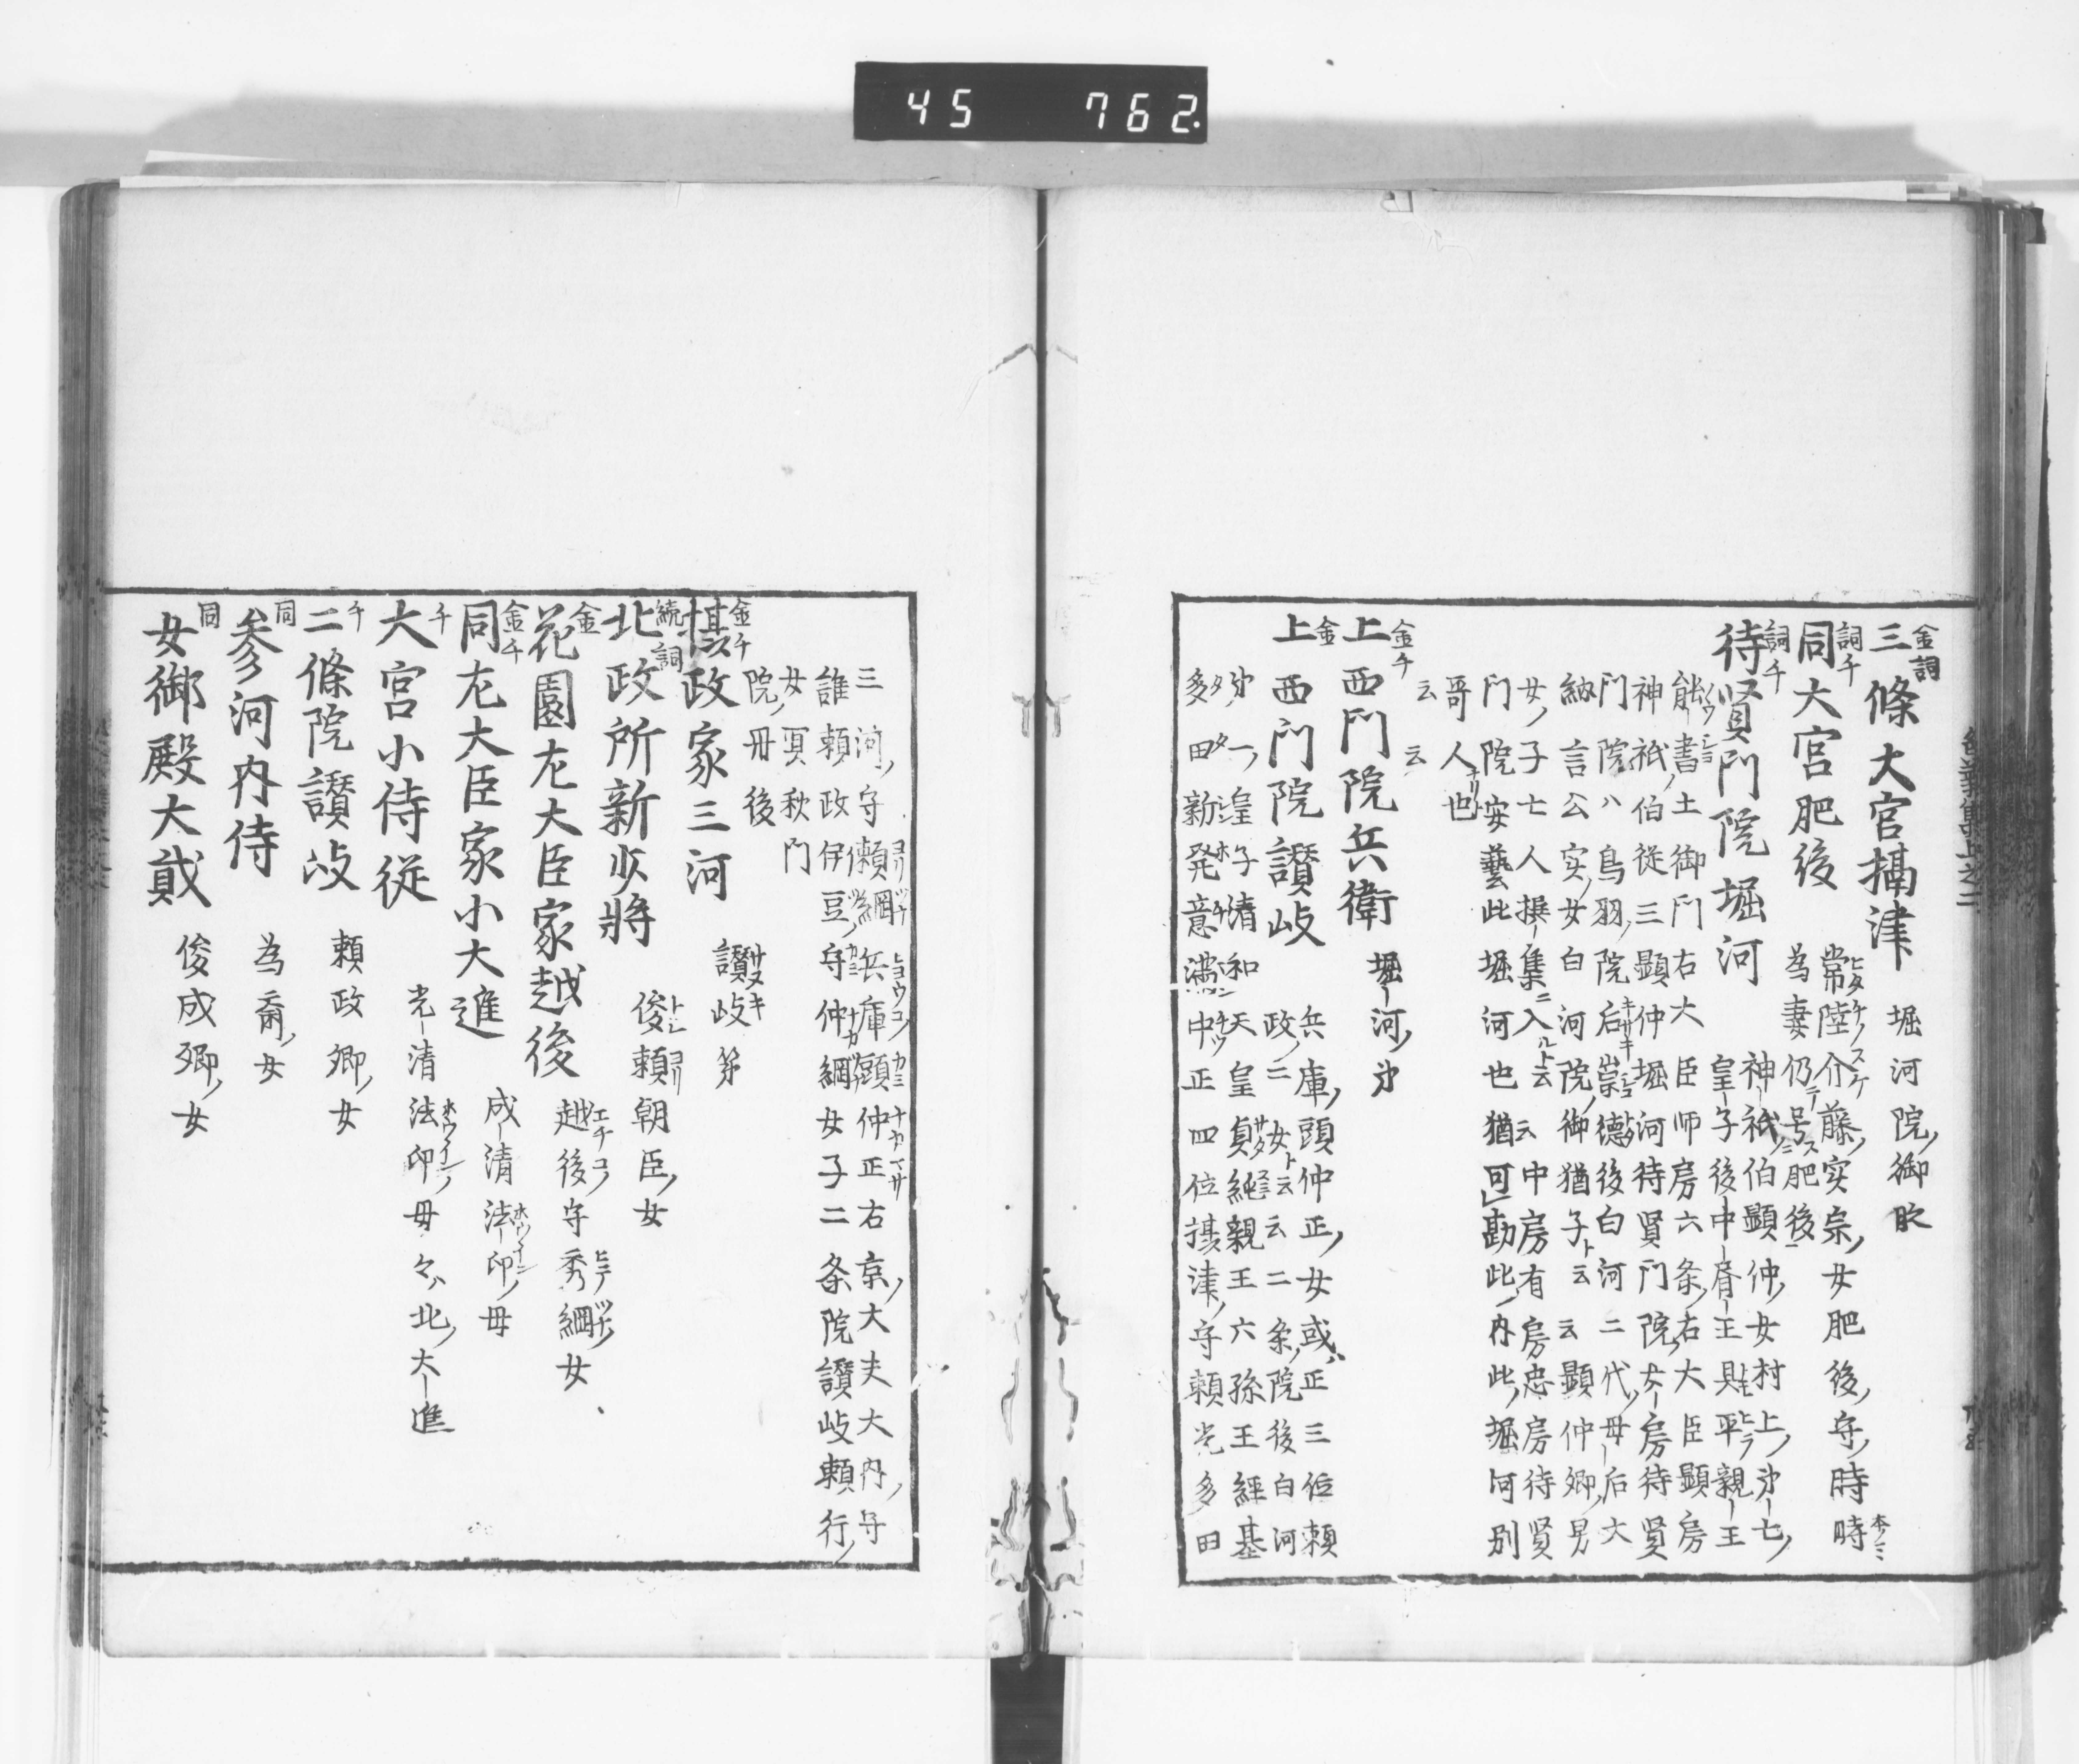 45 762
金詞
三條大宮摂津 堀河院御时
詞千
同大宮肥後 常陸介藤実宗女肥後守時時
為妻仍号肥後
詞千
待賢門院堀河 神祇伯顕仲女村上第七
皇子後中書王具平親王
能書土御門右大臣师房六条右大臣顕房
神祇伯従三顕仲堀河待賢門院女房待賢
門院ハ鳥羽院后崇徳後白河二代母后大
納言公実女白河院御猶子ト云云顕仲卿男
女子七人撰集ニ入ルト云云中房有房忠房待賢
門院安藝此堀河也猶可勘此内此堀河別
哥人也
云云
金千
上西門院兵衛 堀河弟
金
上西門院讃岐 兵庫頭仲正女或正三位頼
政二女ト云云二条院後白河
弟一皇子清和天皇貞純親王六孫王経基
多田新発意満中正四位摂津守頼光多田
三河守頼綱兵庫頭仲正右京大夫大内守
誰頼政伊豆守仲綱女子二条院讃岐頼行
女冥秋門
院丹後
金千
摂政家三河 讃岐弟
続詞
北政所新少将 俊頼朝臣女
金
花園左大臣家越後 越後守秀綱女
金千
同左大臣家小大進 成清法印母
千
大宮小侍従 光清法印母々ハ北大進
千
二條院讃岐 頼政卿女
同
参河内侍 為爾女
同
女御殿大貳 俊成卿女